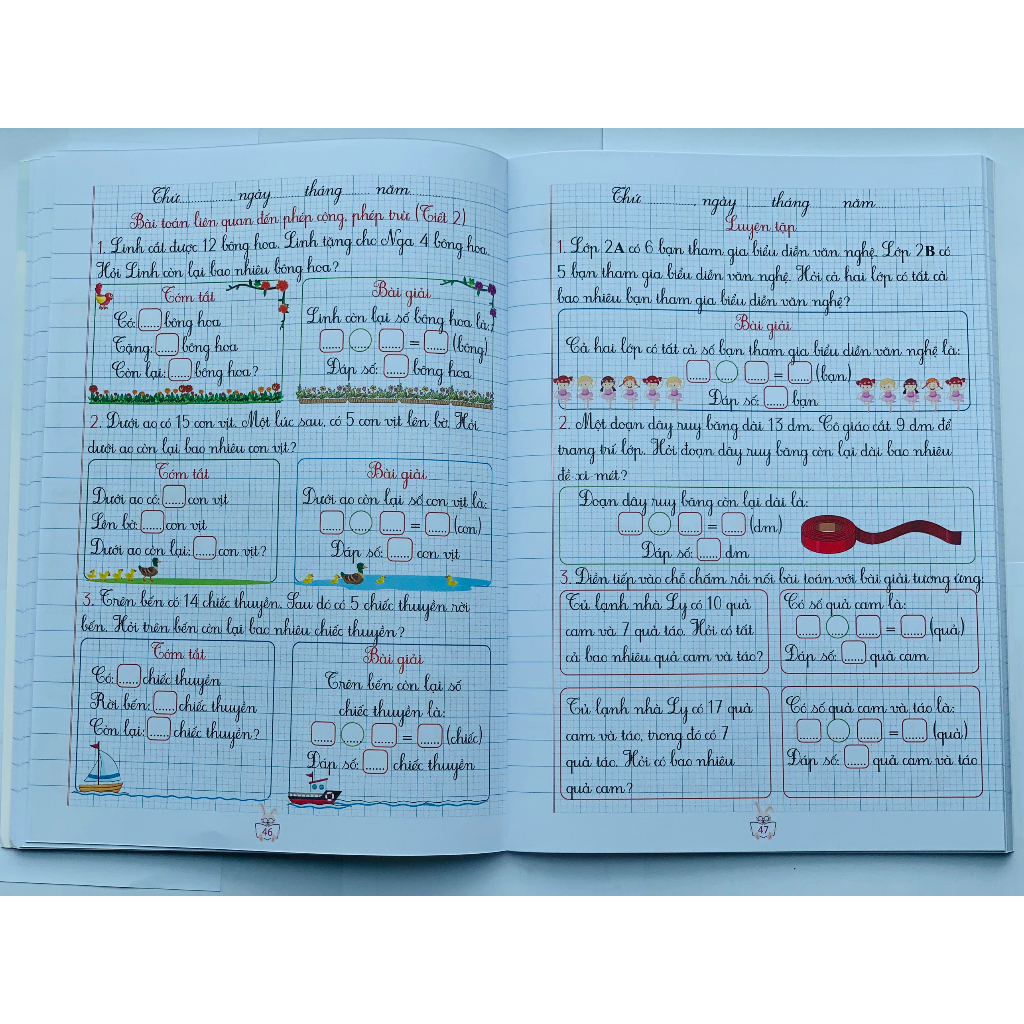 Thứ............, ngày........tháng........năm............
Bài toán liên quan đến phép cộng, phép trừ (Tiết 2)
1. Linh cắt được 12 bông hoa. Linh tặng cho Nga 4 bông hoa.
Hỏi Linh còn lại bao nhiêu bông hoa?
Tóm tắt
Có: ..... bông hoa
Tặng: ..... bông hoa
Còn lại: ..... bông hoa?
Bài giải
Linh còn lại số bông hoa là:
..... ..... = ..... (bông)
Đáp số: ..... bông hoa
2. Dưới ao có 15 con vịt. Một lúc sau, có 5 con vịt lên bờ. Hỏi
dưới ao còn lại bao nhiêu con vịt?
Tóm tắt
Dưới ao có: ..... con vịt
Lên bờ: ..... con vịt
Dưới ao còn lại: ..... con vịt?
Bài giải
Dưới ao còn lại số con vịt là:
..... ..... = ..... (con)
Đáp số: ..... con vịt
3. Trên bến có 14 chiếc thuyền. Sau đó có 5 chiếc thuyền rời
bến. Hỏi trên bến còn lại bao nhiêu chiếc thuyền?
Tóm tắt
Có: ..... chiếc thuyền
Rời bến: ..... chiếc thuyền
Còn lại: ..... chiếc thuyền?
Bài giải
Trên bến còn lại số
chiếc thuyền là:
..... ..... = ..... (chiếc)
Đáp số: ..... chiếc thuyền
46
Thứ............, ngày........tháng........năm........
Luyện tập
1. Lớp 2A có 6 bạn tham gia biểu diễn văn nghệ. Lớp 2B có
5 bạn tham gia biểu diễn văn nghệ. Hỏi cả hai lớp có tất cả
bao nhiêu bạn tham gia biểu diễn văn nghệ?
Bài giải
Cả hai lớp có tất cả số bạn tham gia biểu diễn văn nghệ là:
..... ..... = ..... (bạn)
Đáp số: ..... bạn
2. Một đoạn dây ruy băng dài 13 dm. Cô giáo cắt 9 dm để
trang trí lớp. Hỏi đoạn dây ruy băng còn lại dài bao nhiêu
đề-xi-mét?
Đoạn dây ruy băng còn lại dài là:
..... ..... = ..... (dm)
Đáp số: ..... dm
3. Điền tiếp vào chỗ chấm rồi nối bài toán với bài giải tương ứng:
Tủ lạnh nhà Ly có 10 quả
cam và 7 quả táo. Hỏi có tất
cả bao nhiêu quả cam và táo?
Có số quả cam là:
..... ..... = ..... (quả)
Đáp số: ..... quả cam
Tủ lạnh nhà Ly có 17 quả
cam và táo, trong đó có 7
quả táo. Hỏi có bao nhiêu
quả cam?
Có số quả cam và táo là:
..... ..... = ..... (quả)
Đáp số: ..... quả cam và táo
47